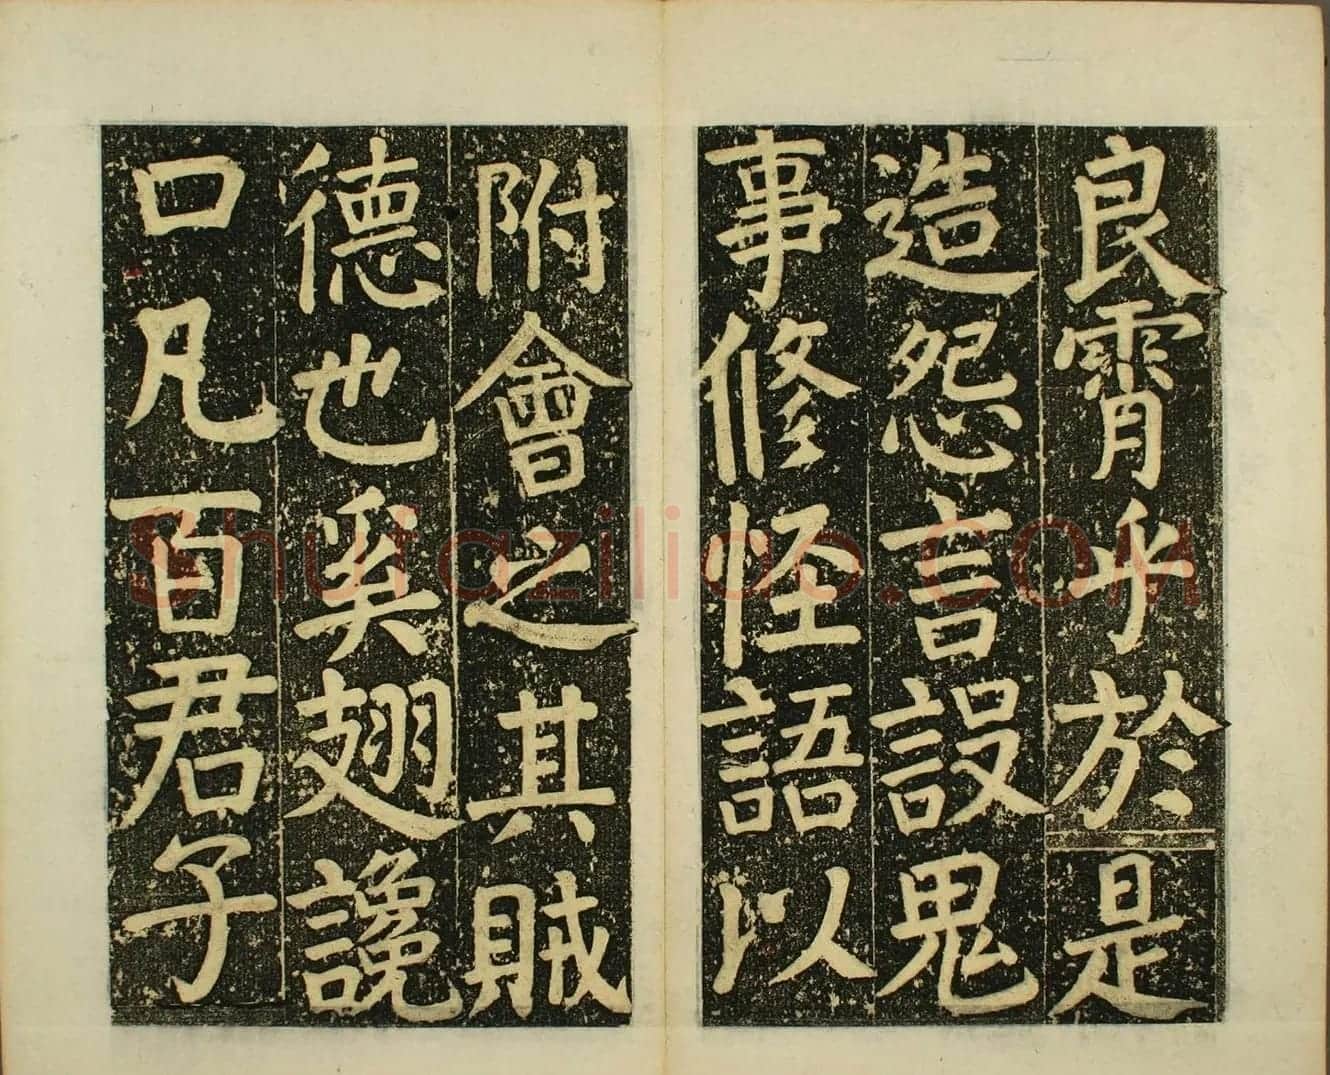 良霄乎於是
造怨言設鬼
事修怪語以
附會之其賊
德也奚翅讒
口凡百君子
Shufaziliao.COM